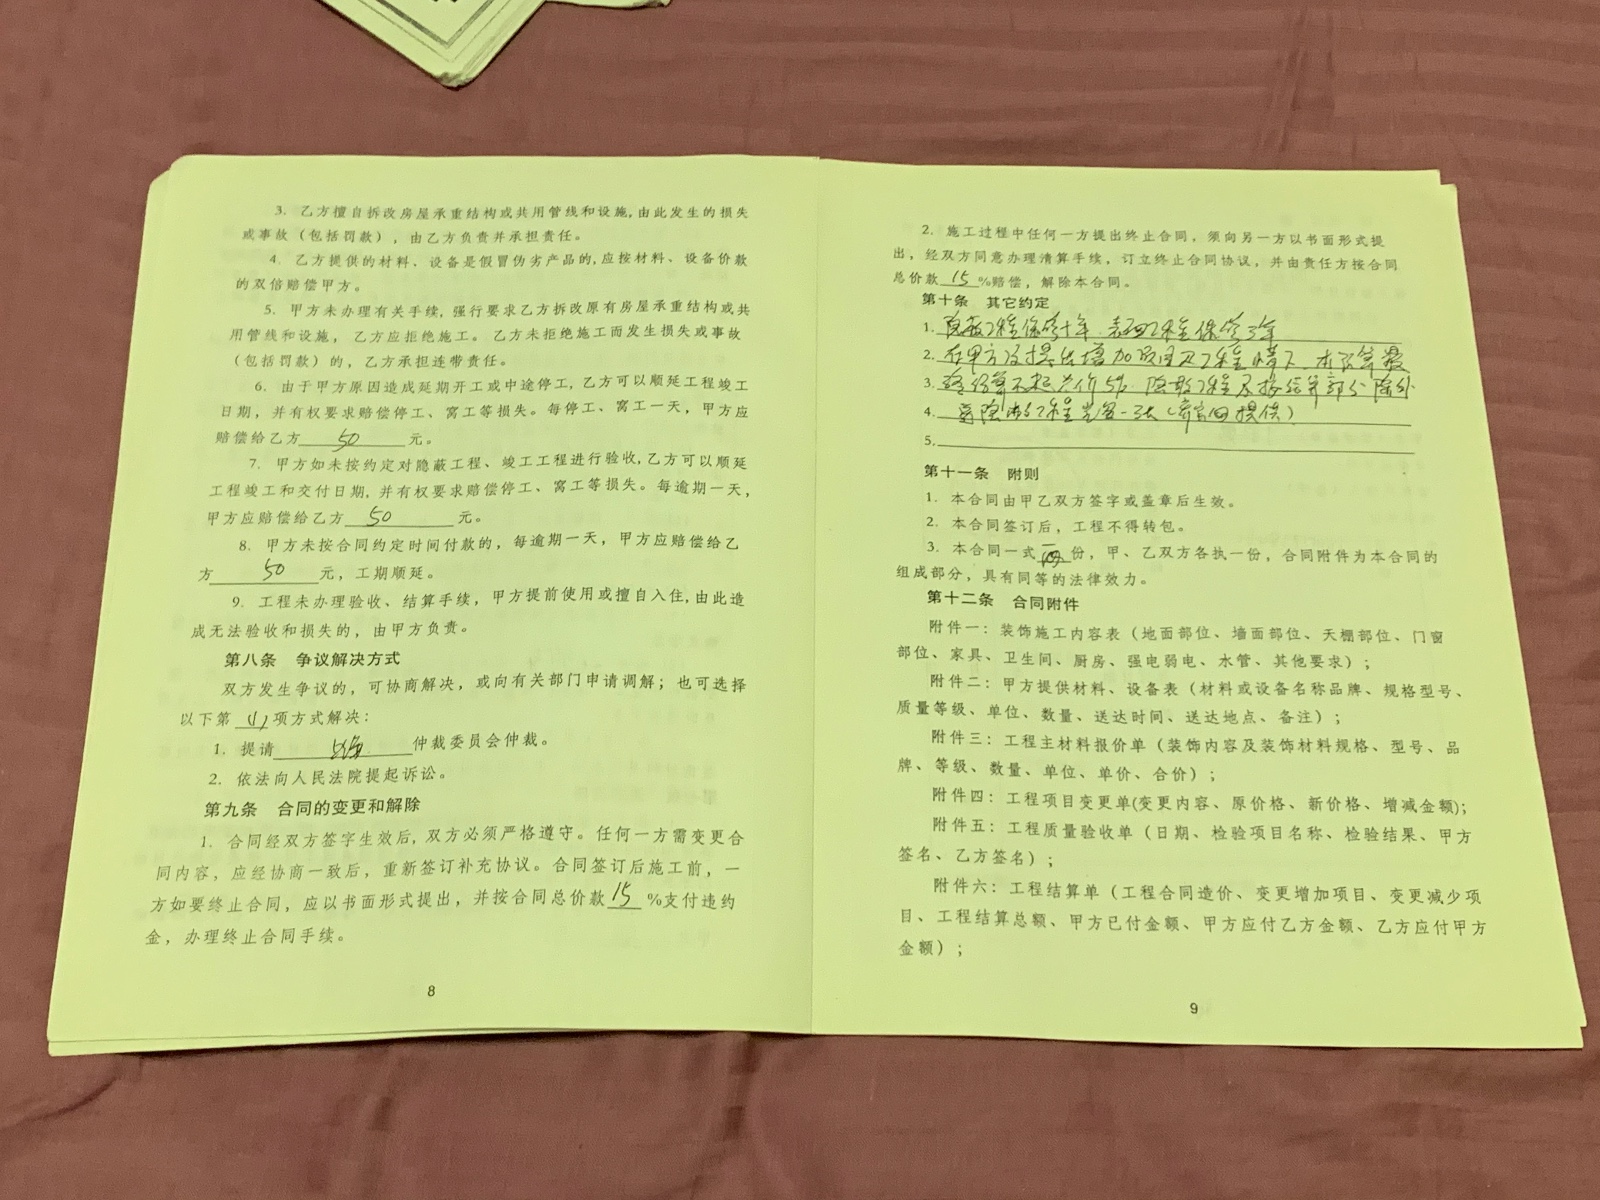 3. 乙方擅自拆改房屋承重结构或共用管线和设施,由此发生的损失
或事故（包括罚款）,由乙方负责并承担责任。
4. 乙方提供的材料、设备是假冒伪劣产品的,应按材料、设备价款
的双倍赔偿甲方。
5. 甲方未办理有关手续,强行要求乙方拆改原有房屋承重结构或共
用管线和设施, 乙方应拒绝施工。乙方未拒绝施工而发生损失或事故
(包括罚款）的, 乙方承担连带责任。
6. 由于甲方原因造成延期开工或中途停工,乙方可以顺延工程竣工
日期, 并有权要求赔偿停工、窝工等损失。每停工、窝工一天, 甲方应
赔偿给乙方 50 元。
7. 甲方如未按约定对隐蔽工程、竣工工程进行验收,乙方可以顺延
工程竣工和交付日期,并有权要求赔偿停工、窝工等损失。每逾期一天,
甲方应赔偿给乙方 50 元。
8. 甲方未按合同约定时间付款的, 每逾期一天, 甲方应赔偿给乙
方 50 元, 工期顺延。
9. 工程未办理验收、结算手续, 甲方提前使用或擅自入住,由此造
成无法验收和损失的, 由甲方负责。
第八条 争议解决方式
双方发生争议的, 可协商解决, 或向有关部门申请调解; 也可选择
以下第 (1) 项方式解决:
1. 提请 上海 仲裁委员会仲裁。
2. 依法向人民法院提起诉讼。
第九条 合同的变更和解除
1. 合同经双方签字生效后, 双方必须严格遵守。任何一方需变更合
同内容, 应经协商一致后, 重新签订补充协议。合同签订后施工前, 一
方如要终止合同, 应以书面形式提出, 并按合同总价款 15 %支付违约
金, 办理终止合同手续。
8
2. 施工过程中任何一方提出终止合同, 须向另一方以书面形式提
出, 经双方同意办理清算手续, 订立终止合同协议, 并由责任方按合同
总价款 15 %赔偿, 解除本合同。
第十条 其它约定
1. 隐蔽工程保修十年.表面工程保修3年
2. 在甲方没提出增加项目及工程情下.本预算最
3. 终结算不超总价5% 隐蔽工程及按结算部分除外
4. 工程 一张(提供)
5.
第十一条 附则
1. 本合同由甲乙双方签字或盖章后生效。
2. 本合同签订后, 工程不得转包。
3. 本合同一式 两 份, 甲、乙双方各执一份, 合同附件为本合同的
组成部分, 具有同等的法律效力。
第十二条 合同附件
附件一: 装饰施工内容表（地面部位、墙面部位、天棚部位、门窗
部位、家具、卫生间、厨房、强电弱电、水管、其他要求）;
附件二: 甲方提供材料、设备表（材料或设备名称品牌、规格型号、
质量等级、单位、数量、送达时间、送达地点、备注）;
附件三: 工程主材料报价单（装饰内容及装饰材料规格、型号、品
牌、等级、数量、单位、单价、合价）;
附件四: 工程项目变更单(变更内容、原价格、新价格、增减金额);
附件五: 工程质量验收单（日期、检验项目名称、检验结果、甲方
签名、乙方签名）;
附件六: 工程结算单（工程合同造价、变更增加项目、变更减少项
目、工程结算总额、甲方已付金额、甲方应付乙方金额、乙方应付甲方
金额）;
9